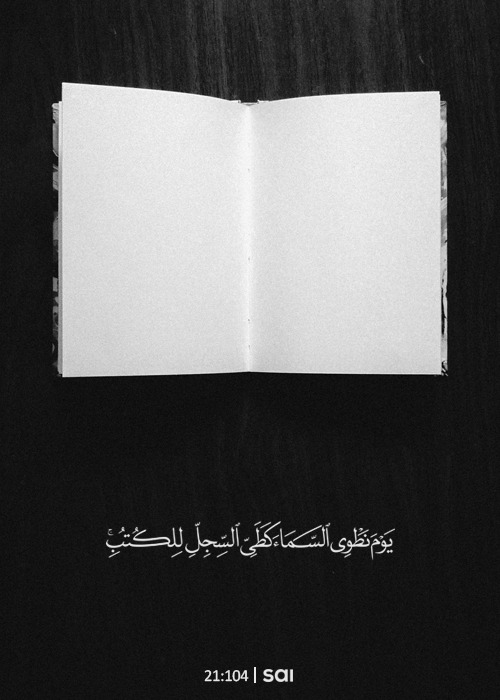 يَوْمَ نَطْوِى ٱلسَّمَآءَ كَطَىِّ ٱلسِّجِلِّ لِلْكُتُبِ ۚ
21:104 | sai